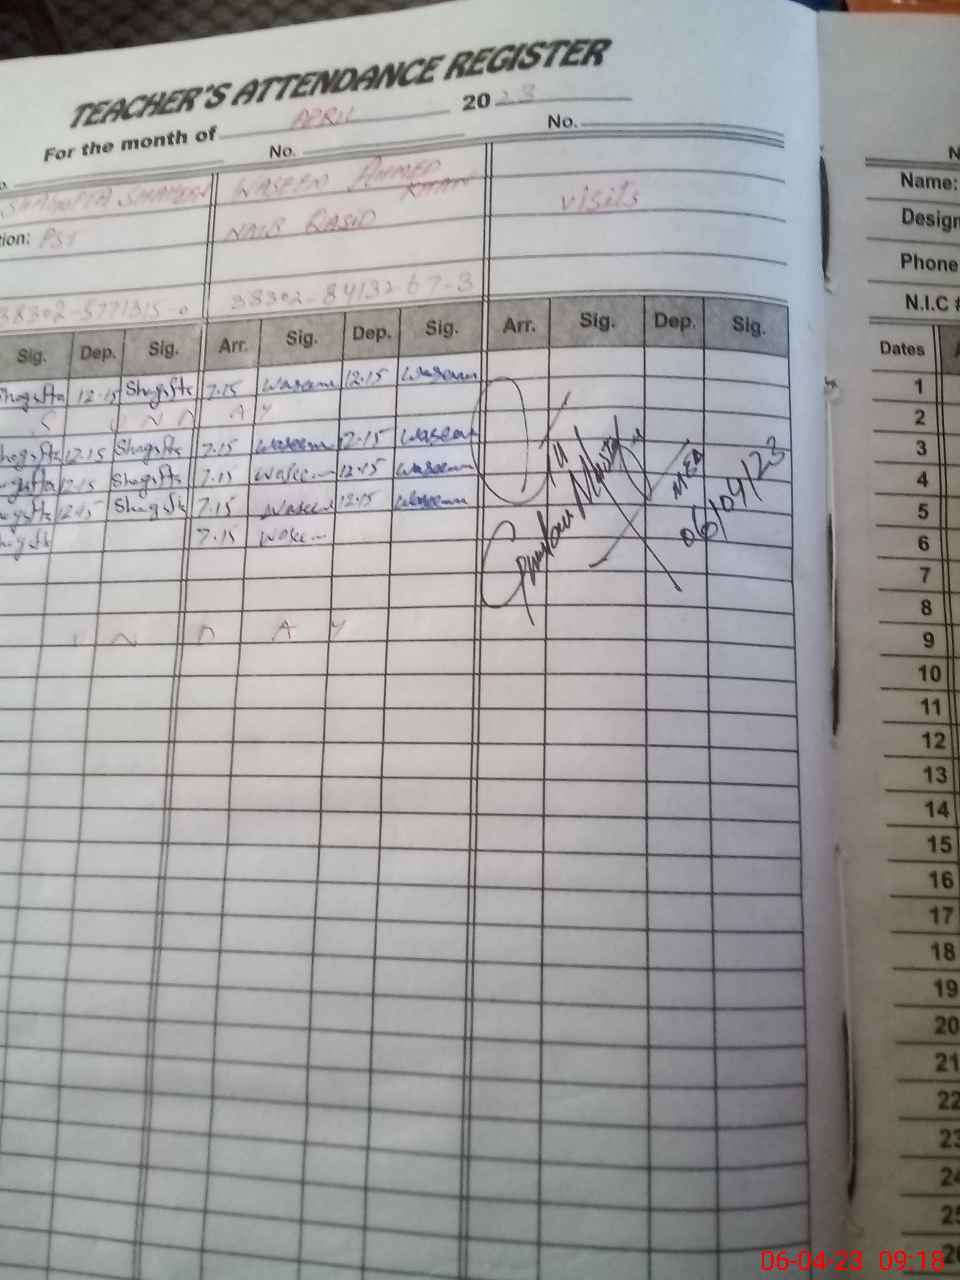 TEACHER'S ATTENDANCE REGISTER
For the month of APRIL 2023
No. No.
SHAGUFTA SHAHEEN WASEEM AHMED KHAN visits
tion: PST NAIB QASID
38302-5771315-0 38302-84132-67-3
Sig. Dep. Sig. Arr. Sig. Dep. Sig. Arr. Sig. Dep. Sig.
Shagufta 12.15 Shagufta 7.15 Waseem 12.15 Waseem
S U N D A Y
Shagufta 12.15 Shagufta 7.15 Waseem 12.15 Waseem
Shagufta 12.15 Shagufta 7.15 Waseem 12.15 Waseem
Shagufta 12.15 Shagufta 7.15 Waseem 12.15 Waseem
Shagufta 7.15 Waseem
U N D A Y
MEA
06/04/23
Name:
Design
Phone
N.I.C #
Dates
1
2
3
4
5
6
7
8
9
10
11
12
13
14
15
16
17
18
19
20
21
22
23
24
25
26
06-04-23 09:18